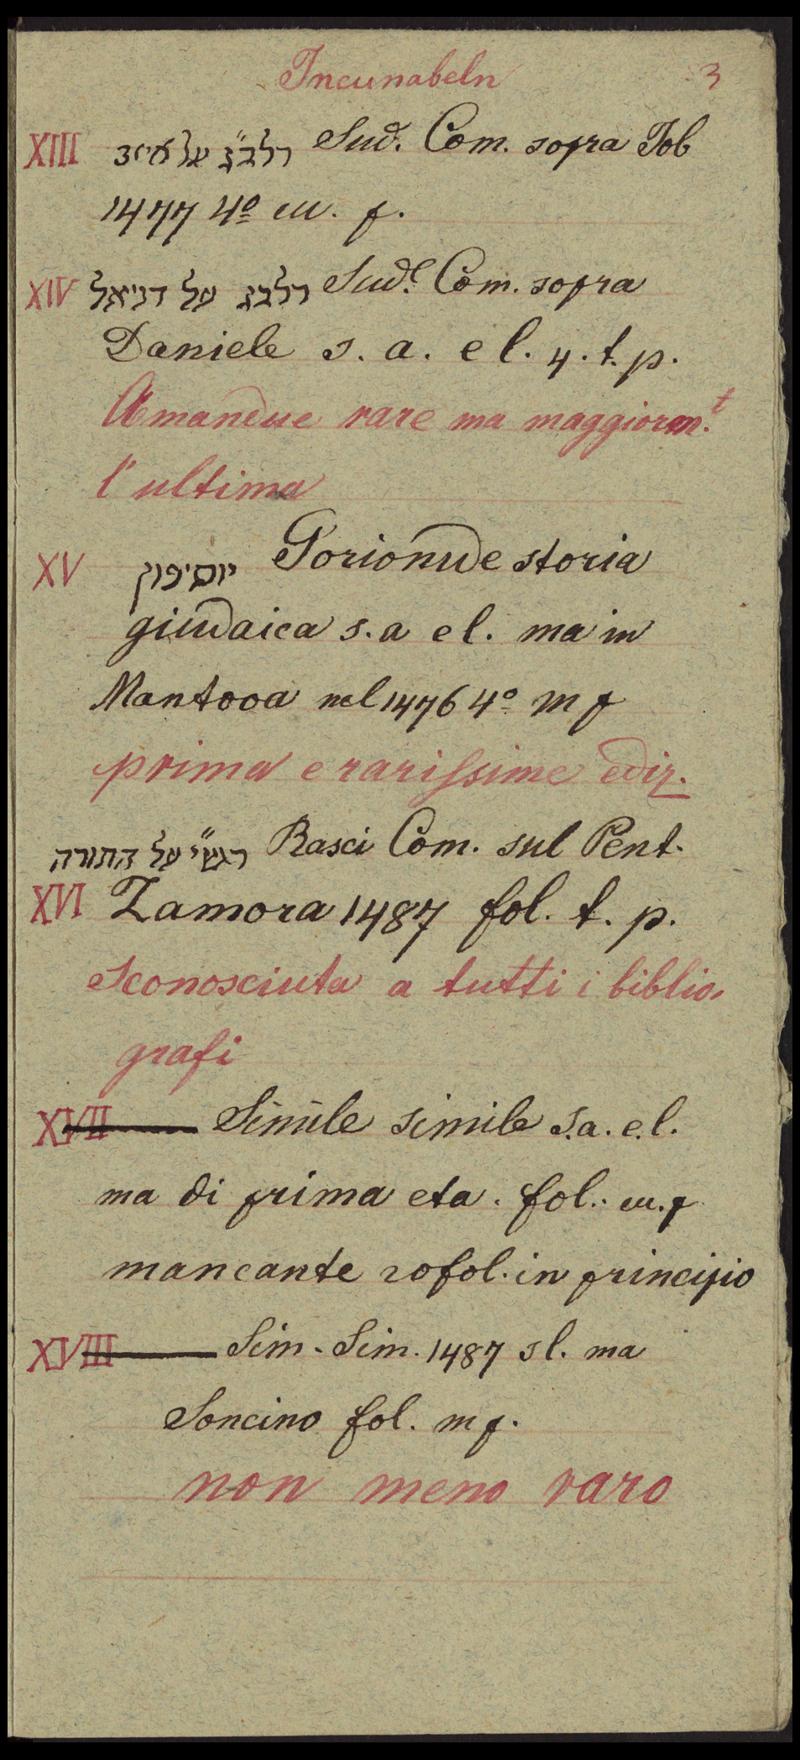 Incunabeln 3
XIII רלב״ג על איוב Sud. Com. sopra Iob
1477 4º m. f.
XIV רלבג על דניאל Sud.e Com. sopra
Daniele s. a. e l. 4. t. p.
Amandue rare ma maggiorm.t
l'ultima
XV יוסיפון Gorionide storia
giudaica s. a e l. ma in
Mantova nel 1476 4º m f
prima e rarissime ediz.
רש״י על התורה Rasci Com. sul Pent.
XVI Zamora 1487 fol. t. p.
Sconosciuta a tutti i biblio-
grafi
XVII Simile simile s. a. e. l.
ma di prima eta. fol. m. f
mancante fol. in principio
XVIII Sim. Sim. 1487 s l. ma
Soncino fol. m f.
non meno raro